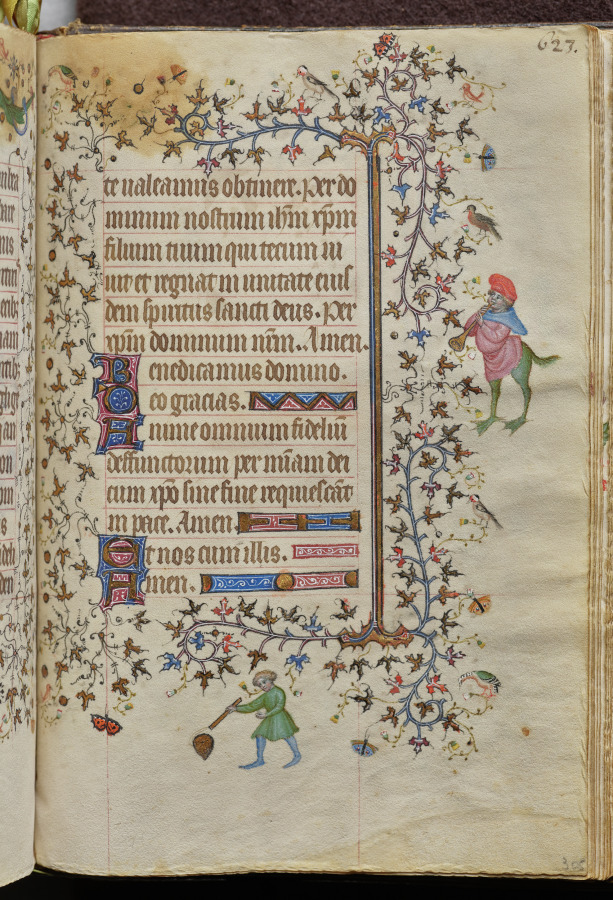 623.
te ualeamus obtinere. Per do
minum nostrum ihm xpm
filium tuum qui tecum ui
uit et regnat in unitate eius
dem spiritus sancti deus. Per
xpm dominum nrm. Amen.
Benedicamus domino.
Deo gracias.
Anime omnium fideliu
defunctorum per miam dei
cum xpo sine fine requiescat
in pace. Amen.
Et nos cum illis.
Amen.
305